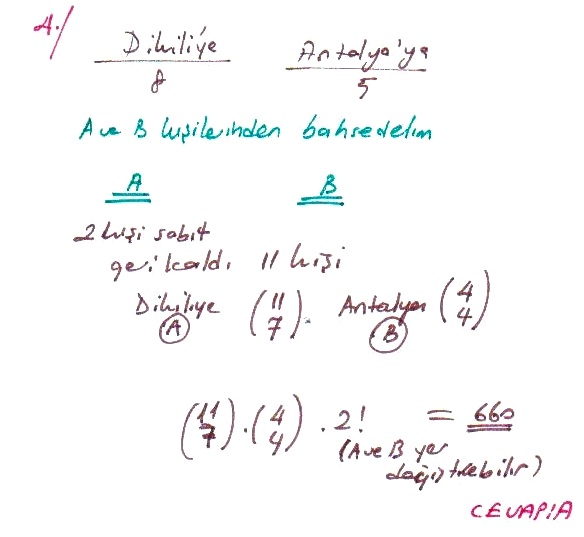 4./
Dikili'ye Antalya'ya
8 5
A ve B kişilerinden bahsedelim
A B
2 kişi sabit
geri kaldı 11 kişi
Dikiliye (11 7) . Antalya (4 4)
A B
(11 7) . (4 4) . 2! = 660
(A ve B yer
değiştirebilir)
CEVAP:A